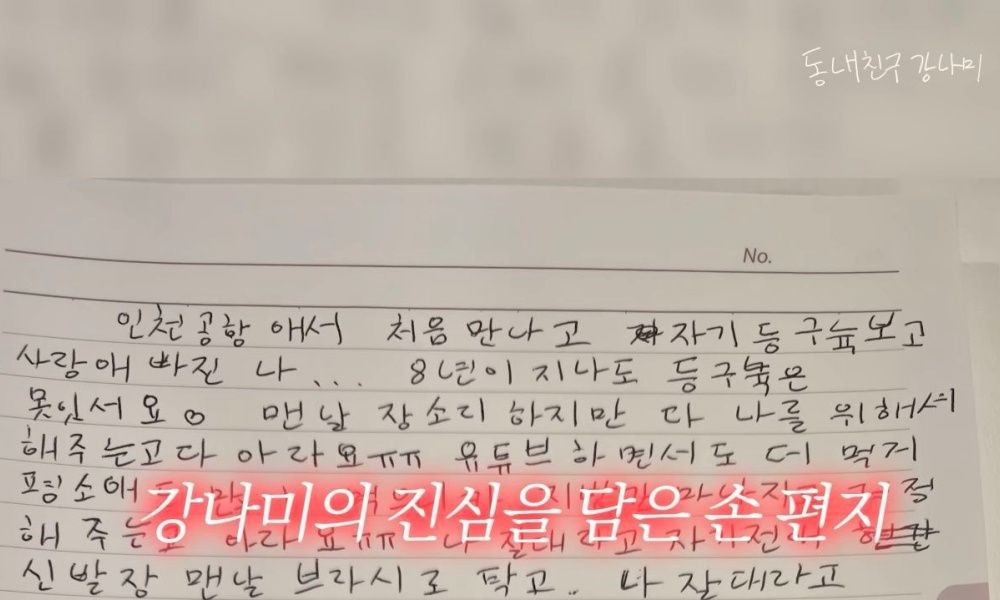 동내친구 강나미
No.
인천공항 애서 처음 만나고 자기 등 구뉵보고
사랑애 빠진 나... 8년이 지나도
못잇서요。 맨날 장소리 하지만 다 나를 위해서
해주는고다 아라요ㅠㅠ 유튜브 하면서도
강나미의 진심을 담은 손 편지
해 주는 아라요ㅠㅠ 나 잘대라고 자기전
신발장 맨날 브라시로 탁고.. 나 잘대라고